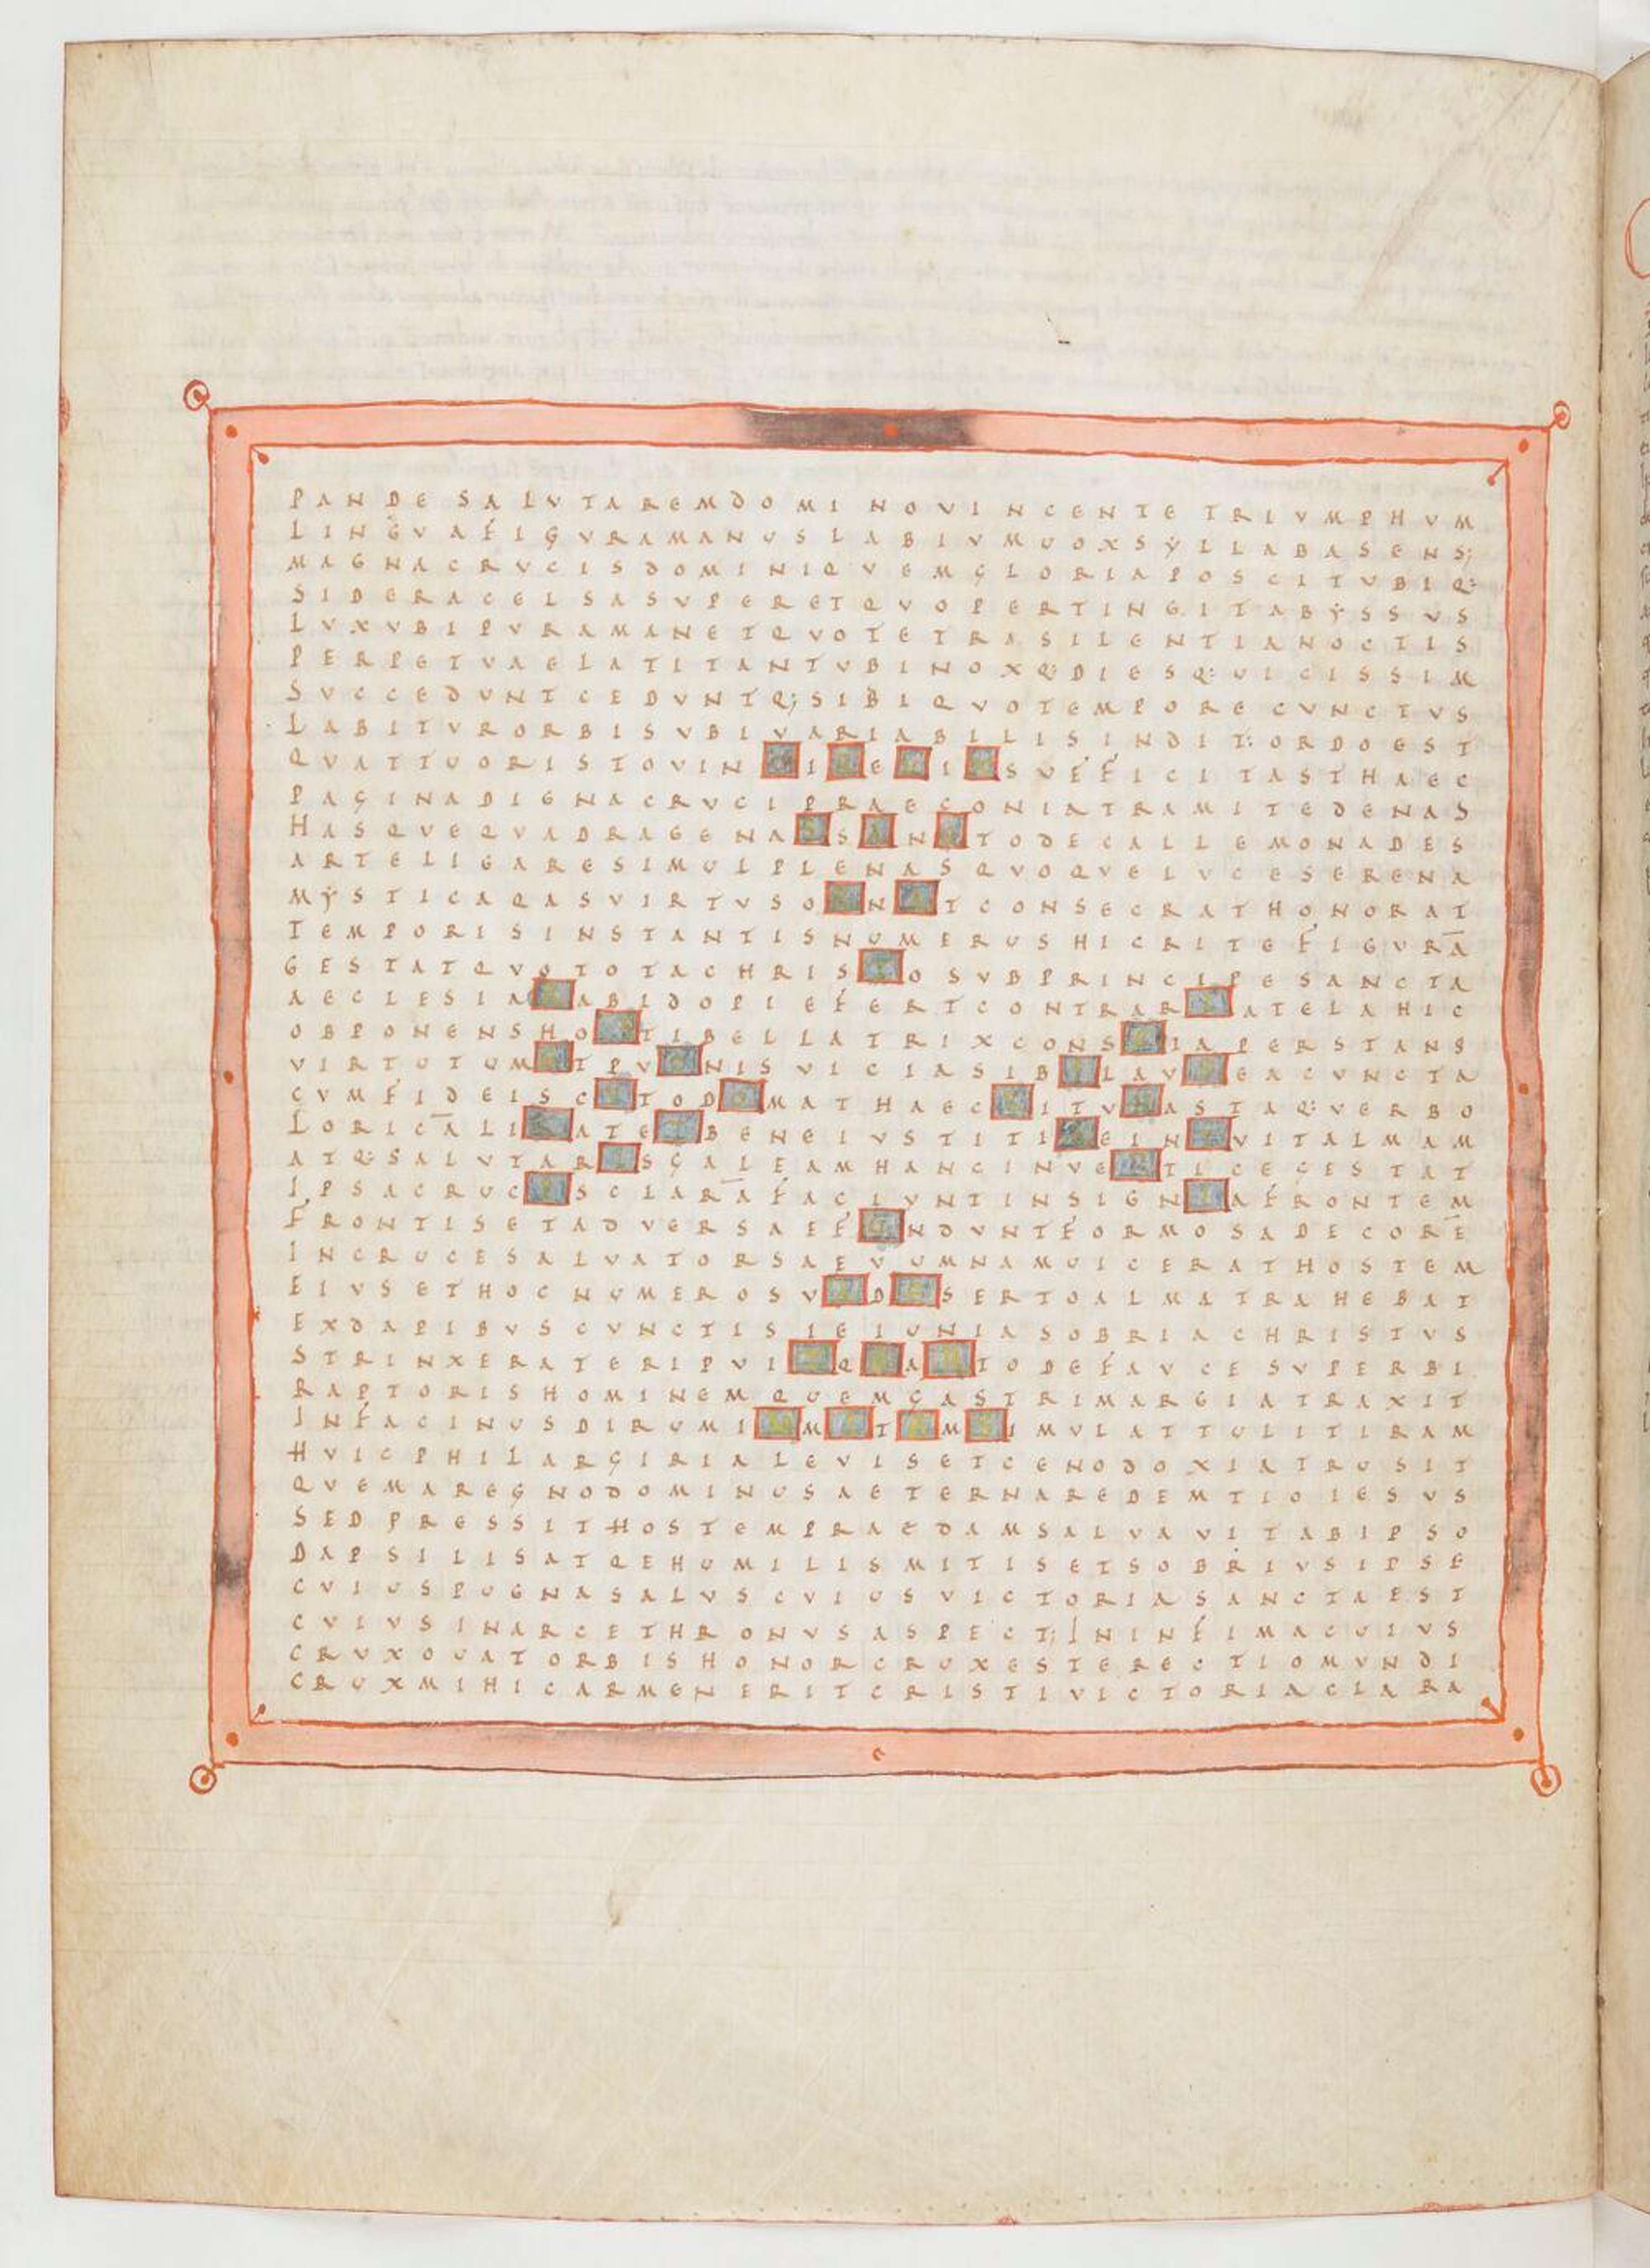 PANDESALVTAREMDOMINOVINCENTETRIVMPHVM
LINGVAFIGVRAMANUSLABIVMUOXSYLLABASENS;
MAGNACRVCISDOMINIQVEMGLORIAPOSCITVBIQ:
SIDERACELSASVPERETQVOPERTINGITABYSSVS
LVXVBIPVRAMANETQVOTETRASILENTIANOCTIS
PERPETVAELATITANTVBINOXQ:DIESQ:UICISSIM
SVCCEDUNTCEDVNTQ;SIBIQVOTEMPORECVNCTVS
LABITVRORBISVBIVARIABILISINDIT:ORDOEST
QVATTUORISTOVIN I E I SVFFICITASTHAEC
PAGINADIGNACRVCIPRAECONIATRAMITEDENAS
HASQVEQVADRAGENASSANCTODECALLEMONADES
ARTELIGARESIMULPLENASQVOQVELVCESERENA
MYSTICAQASVIRTVSORNATCONSECRATHONORAT
TEMPORISINSTANTISNUMERUSHICRITEFIGVRĀ
GESTATQVOTOTACHRISTOSVBPRINCIPESANCTA
AECLESIARABIDOPIEFERTCONTRARIATELAHIC
OBPONENSHOSTIBELLATRIXCONSCIAPERSTANS
VIRTUTUMETPVGNISVICIASIBILAVREACVNCTA
CVMFIDEISCVTODOMATHAEC ITVHASTAQ:VERBO
LORICĀLIGATETBENEIVSTITIAEINDVITALMAM
ATQ:SALVTARISGALEAMHANCINVERTICEGESTAT
IPSACRUCISCLARĀFACIVNTINSIGNIAFRONTEM
FRONTISETADVERSAEFFUNDVNTFORMOSADECORĒ
INCRUCESALVATORSAEVUMNAMUICERATHOSTEM
EIVSETHOCNUMEROSVBDESERTOALMATRAHEBAT
EXDAPIBVSCVNCTISIEIUNIASOBRIACHRISTVS
STRINXERATERIPVITQVA TODEFAVCESVPERBI
RAPTORISHOMINEMQUEMGASTRIMARGIATRAXIT
INFACINUSDIRUMI METUMSIMVLATTULITIRAM
HVICPHILARGIRIALEVISETCENODOXIATRUSIT
QVEMAREGNODOMINUSAETERNAREDEMTIOIESVS
SEDPRESSITHOSTEMPRAEDAMSALVAVITABIPSO
DAPSILISATQEHUMILISMITISETSOBRIVSIPSE
CVIUSPUGNASALVSCVIUSVICTORIASANCTAEST
CVIVSINARCETHRONVSASPECT;ININFIMACUIVS
CRVXOUATORBISHONORCRUXESTERECTIOMVNDI
CRUXMIHICARMENERITCRISTIVICTORIACLARA